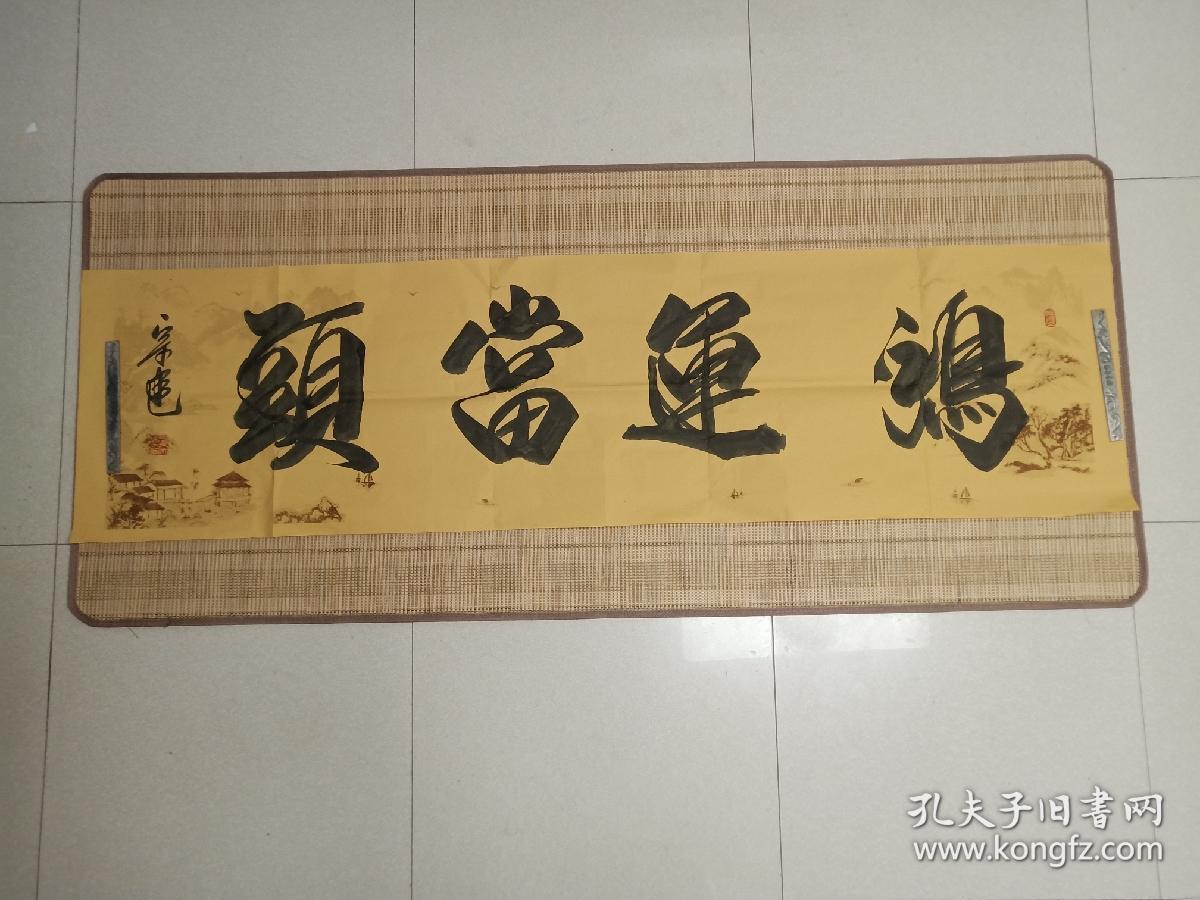 鴻運當頭
孔夫子旧書网
www.kongfz.com